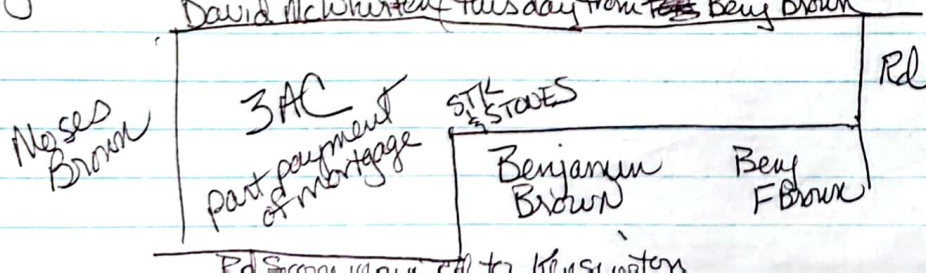 David McWhirter Tuesday from Benj Brown
Moses
Brown
3AC
part payment
of mortgage
STK
& STONES
Benjamin
Brown
Benj
F Brown
Rd
Rd to Kensington